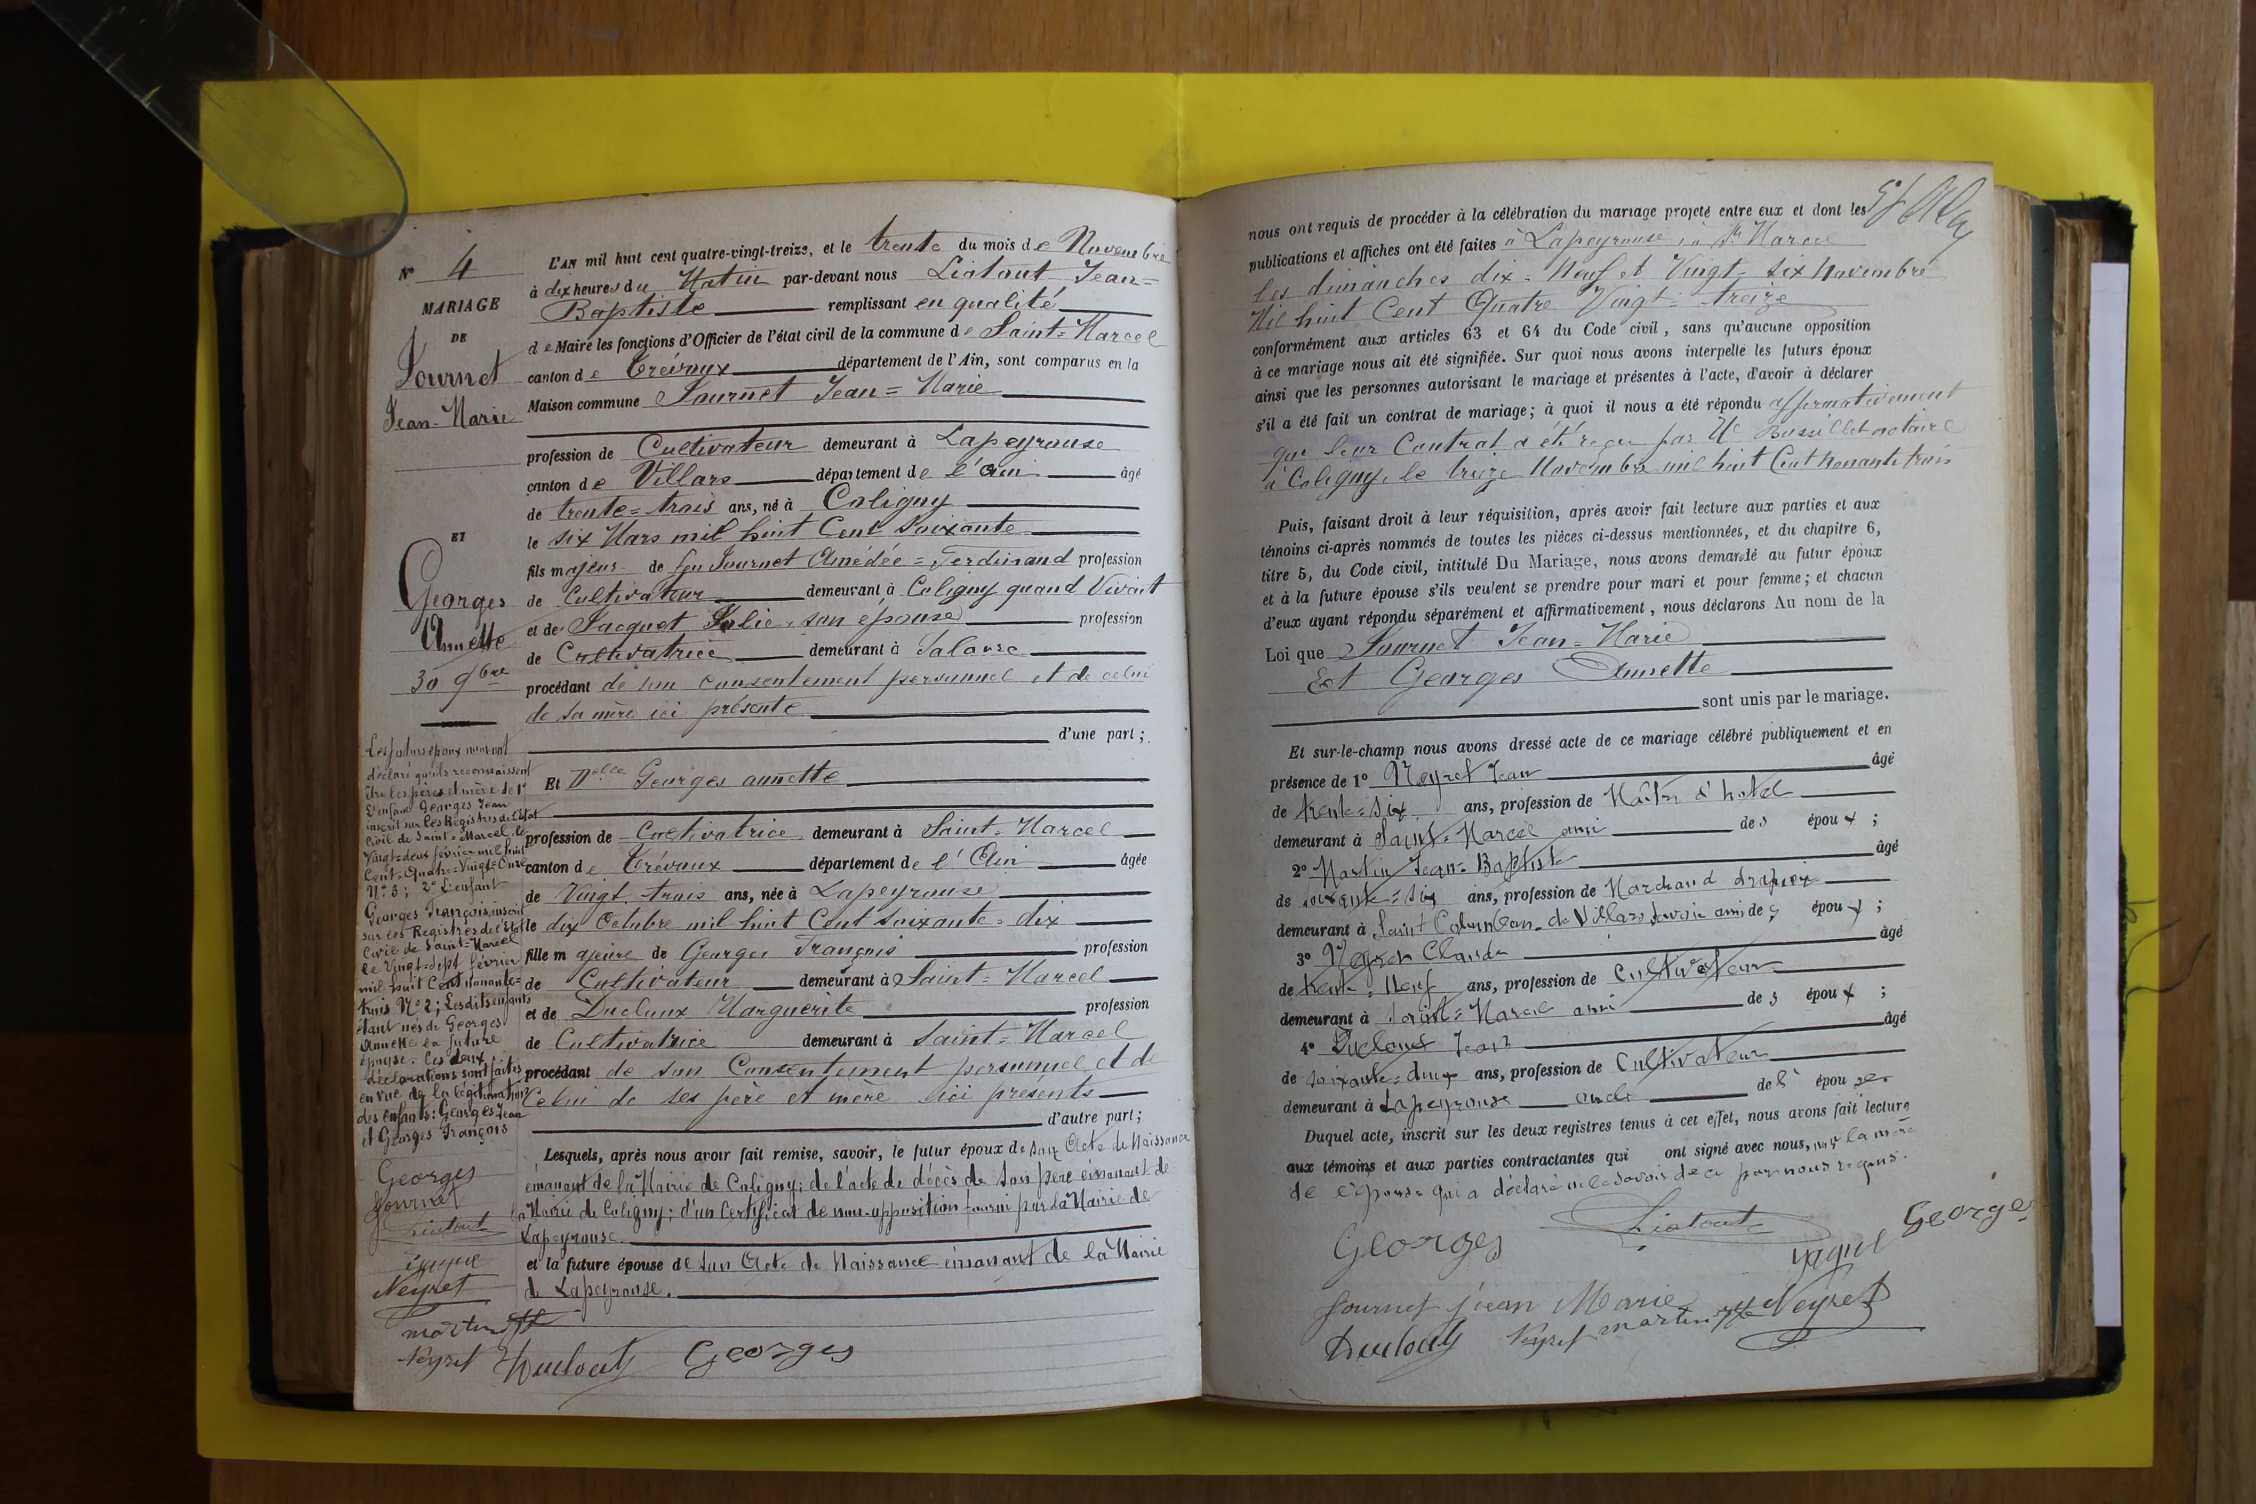 N° 4
MARIAGE
DE
Journet
Jean-Marie
ET
Georges
Annette
30 9bre
L'AN mil huit cent quatre-vingt-treize, et le trente du mois de Novembre
à dix heures du Matin par-devant nous Liatout Jean=
Baptiste remplissant en qualité
de Maire les fonctions d'Officier de l'état civil de la commune de Saint=Marcel
canton de Trévoux département de l'Ain, sont comparus en la
Maison commune Journet Jean=Marie
profession de Cultivateur demeurant à Lapeyrouse
canton de Villars département de l'Ain âgé
de trente=trois ans, né à Coligny
le six Mars mil huit Cent Soixante
fils majeur de feu Journet Amédée=Ferdinand profession
de Cultivateur demeurant à Coligny quand Vivait
et de Jacquet Julie, son épouse profession
de Cultivatrice demeurant à Salavre
procédant de son consentement personnel et de celui
de sa mère ici présente
d'une part;
Et Delle Georges annette
profession de Cultivatrice demeurant à Saint=Marcel
canton de Trévoux département de l'Ain âgée
de Vingt-trois ans, née à Lapeyrouse
le dix Octobre mil huit Cent Soixante=dix
fille majeure de Georges François profession
de Cultivateur demeurant à Saint=Marcel
et de Ducloux Marguerite profession
de Cultivatrice demeurant à Saint=Marcel
procédant de son Consentement personnel et de
Celui de ses père et mère ici présents
d'autre part;
Lesquels, après nous avoir fait remise, savoir, le futur époux de son Acte de Naissance
émanant de la Mairie de Coligny; de l'acte de décès de son père émanant de
la Mairie de Coligny; d'un Certificat de non-opposition fourni par la Mairie de
Lapeyrouse.
et la future épouse de son Acte de Naissance émanant de la Mairie
de Lapeyrouse.
Les futurs époux nous ont
déclaré qu'ils reconnaissent
être les pères et mère de 1°
L'enfant Georges Jean
inscrit sur les Registres de l'Etat
Civil de Saint=Marcel le
Vingt=deux février mil huit
Cent=Quatre=Vingt=Onze
N° 3; 2° L'enfant
Georges François, inscrit
sur les Registres de l'Etat
Civil de Saint=Marcel
le Vingt=Sept février
mil huit Cent Nonante=
trois N° 2; Lesdits enfants
étant nés de Georges
Annette la future
épouse. Ces deux
déclarations sont faites
en vue de la légitimation
des enfants: Georges Jean
et Georges François
Georges
Journet
Liatout
Neyret
martin
Neyret Ducloux Georges
nous ont requis de procéder à la célébration du mariage projeté entre eux et dont les
publications et affiches ont été faites à Lapeyrouse, à St Marcel
les dimanches dix=Neuf et Vingt=six Novembre
Mil huit Cent Quatre Vingt=treize
conformément aux articles 63 et 64 du Code civil, sans qu'aucune opposition
à ce mariage nous ait été signifiée. Sur quoi nous avons interpellé les futurs époux
ainsi que les personnes autorisant le mariage et présentes à l'acte, d'avoir à déclarer
s'il a été fait un contrat de mariage; à quoi il nous a été répondu affirmativement
que leur Contrat a été reçu par Me notaire
à Coligny, le treize Novembre mil huit Cent Nonante trois
Puis, faisant droit à leur réquisition, après avoir fait lecture aux parties et aux
témoins ci-après nommés de toutes les pièces ci-dessus mentionnées, et du chapitre 6,
titre 5, du Code civil, intitulé Du Mariage, nous avons demandé au futur époux
et à la future épouse s'ils veulent se prendre pour mari et pour femme; et chacun
d'eux ayant répondu séparément et affirmativement, nous déclarons Au nom de la
Loi que Journet Jean=Marie
Et Georges Annette
sont unis par le mariage.
Et sur-le-champ nous avons dressé acte de ce mariage célébré publiquement et en
présence de 1° Neyret Jean âgé
de trente=six ans, profession de Maître d'hotel
demeurant à Saint=Marcel ami des époux;
2° Martin Jean=Baptiste âgé
de soixante=six ans, profession de Marchand drapier
demeurant à Saint Colomban-de Villars Savoie ami des époux;
3° Neyret Claude âgé
de trente=Neuf ans, profession de Cultivateur
demeurant à Saint=Marcel ami des époux;
4° Ducloux Jean âgé
de soixante=deux ans, profession de Cultivateur
demeurant à Lapeyrouse oncle de l'épouse
Duquel acte, inscrit sur les deux registres tenus à cet effet, nous avons fait lecture
aux témoins et aux parties contractantes qui ont signé avec nous, la mère
de l'épouse qui a déclaré ne le savoir de ce par nous requis.
Liatout
Georges
Georges
Journet jean Marie
Neyret
Ducloux Neyret martin